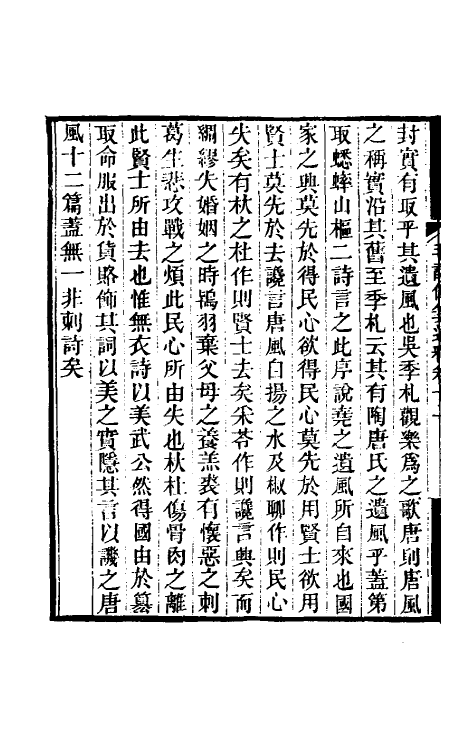 封實有取乎其遺風也吳季札觀樂爲之歌唐則唐風
之稱實沿其舊至季札云其有陶唐氏之遺風乎蓋第
取蟋蟀山樞二詩言之此序說堯之遺風所自來也國
家之興莫先於得民心欲得民心莫先於用賢士欲用
賢士莫先於去讒言唐風白揚之水及椒聊作則民心
失矣有杕之杜作則賢士去矣釆苓作則讒言興矣而
綢繆失婚姻之時鴇羽棄父母之養羔裘有懷惡之刺
葛生悲攻戰之煩此民心所由失也杕杜傷骨肉之離
此賢士所由去也惟無衣詩以美武公然得國由於篡
取命服出於貨賂飾其詞以美之實隱其言以譏之唐
風十二篇蓋無一非刺詩矣